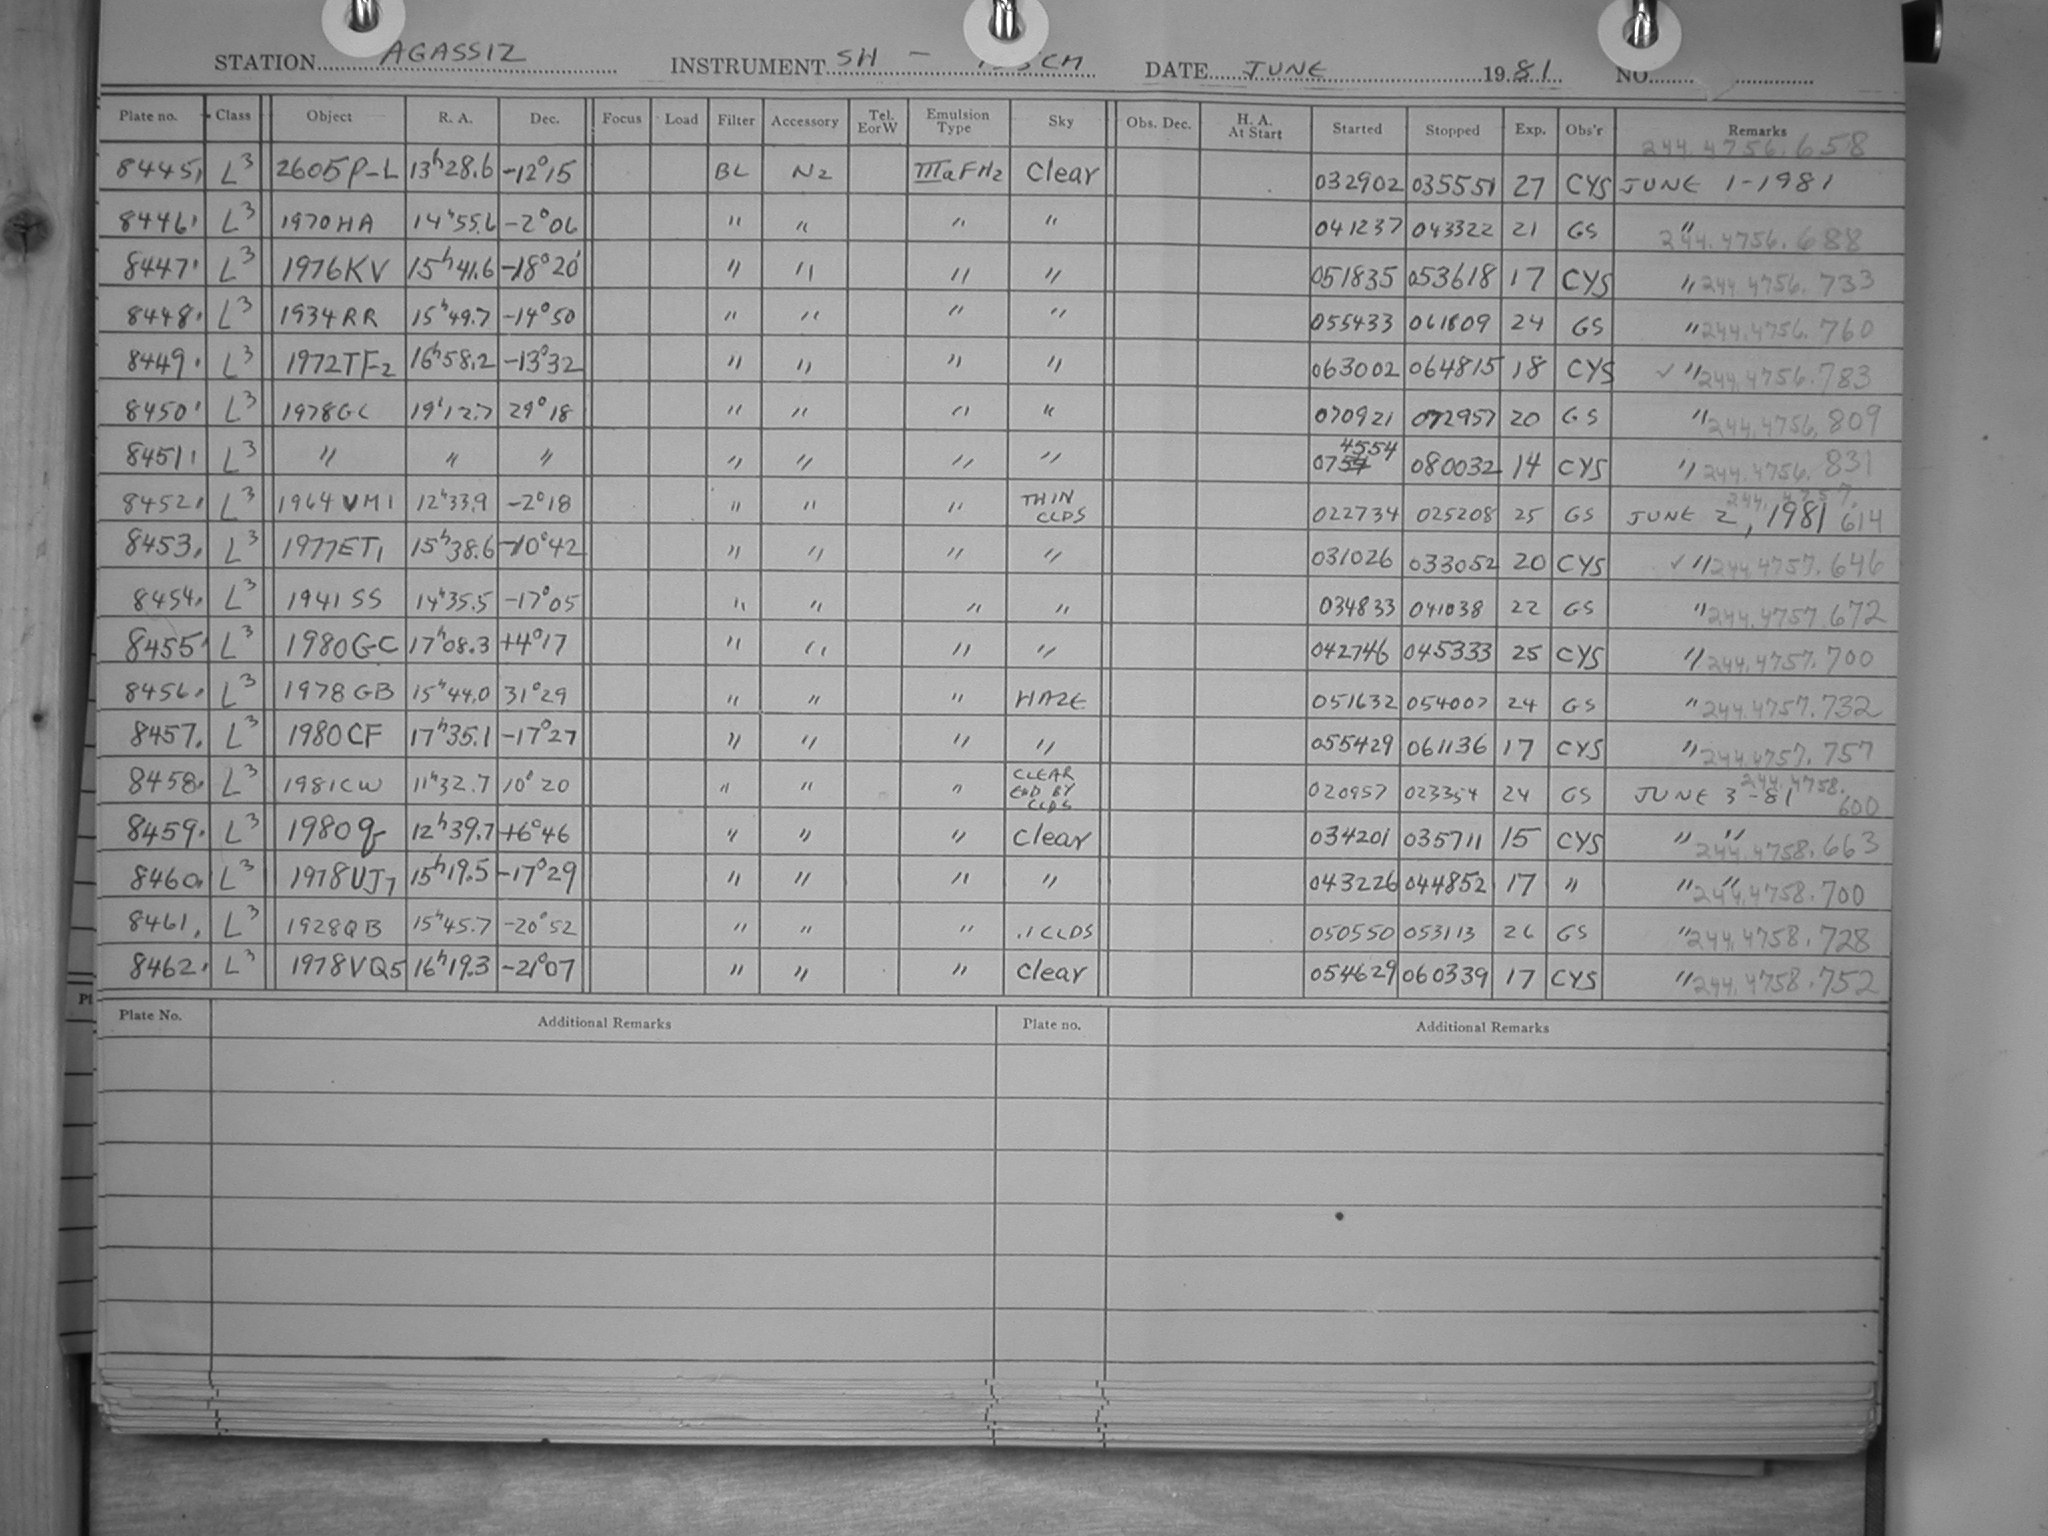 STATION AGASSIZ INSTRUMENT SH – CM DATE JUNE 1981 NO.
Plate no. Class Object R. A. Dec. Focus Load Filter Accessory Tel. EorW Emulsion Type Sky Obs. Dec. H. A. At Start Started Stopped Exp. Obs'r Remarks
244.4756.658
8445, L³ 2605P-L 13ʰ28.6 -12°15 BL N2 IIIaFH2 Clear 032902 035551 27 CYS JUNE 1-1981
8446, L³ 1970HA 14ʰ55.6 -2°06 " " " " 041237 043322 21 GS " 244.4756.688
8447, L³ 1976KV 15ʰ41.6 -18°20' " " " " 051835 053618 17 CYS " 244.4756.733
8448. L³ 1934RR 15ʰ49.7 -14°50 " " " " 055433 061809 24 GS " 244.4756.760
8449. L³ 1972TF2 16ʰ58.2 -13°32 " " " " 063002 064815 18 CYS ✓ " 244.4756.783
8450' L³ 1978GC 19ʰ12.7 29°18 " " " " 070921 072957 20 GS " 244.4756.809
8451, L³ " " " " " " " 074554 080032 14 CYS " 244.4756.831
8452, L³ 1964VM1 12ʰ33.9 -2°18 " " " THIN CLDS 022734 025208 25 GS JUNE 2, 1981 244.4757.614
8453, L³ 1977ET1 15ʰ38.6 -10°42 " " " " 031026 033052 20 CYS ✓ " 244.4757.646
8454. L³ 1941SS 14ʰ35.5 -17°05 " " " " 034833 041038 22 GS " 244.4757.672
8455. L³ 1980GC 17ʰ08.3 +4°17 " " " " 042746 045333 25 CYS " 244.4757.700
8456. L³ 1978GB 15ʰ44.0 31°29 " " " HAZE 051632 054007 24 GS " 244.4757.732
8457. L³ 1980CF 17ʰ35.1 -17°27 " " " " 055429 061136 17 CYS " 244.4757.757
8458. L³ 1981CW 11ʰ32.7 10°20 " " " CLEAR END BY CLDS 020957 023354 24 GS JUNE 3-81 244.4758.600
8459. L³ 1980q 12ʰ39.7 +6°46 " " " Clear 034201 035711 15 CYS " " 244.4758.663
8460. L³ 1978UJ7 15ʰ19.5 -17°29 " " " " 043226 044852 17 " " " 244.4758.700
8461, L³ 1928QB 15ʰ45.7 -20°52 " " " .1 CLDS 050550 053113 26 GS " 244.4758.728
8462. L³ 1978VQ5 16ʰ19.3 -21°07 " " " Clear 054629 060339 17 CYS " 244.4758.752
Plate No. Additional Remarks Plate no. Additional Remarks
Pl